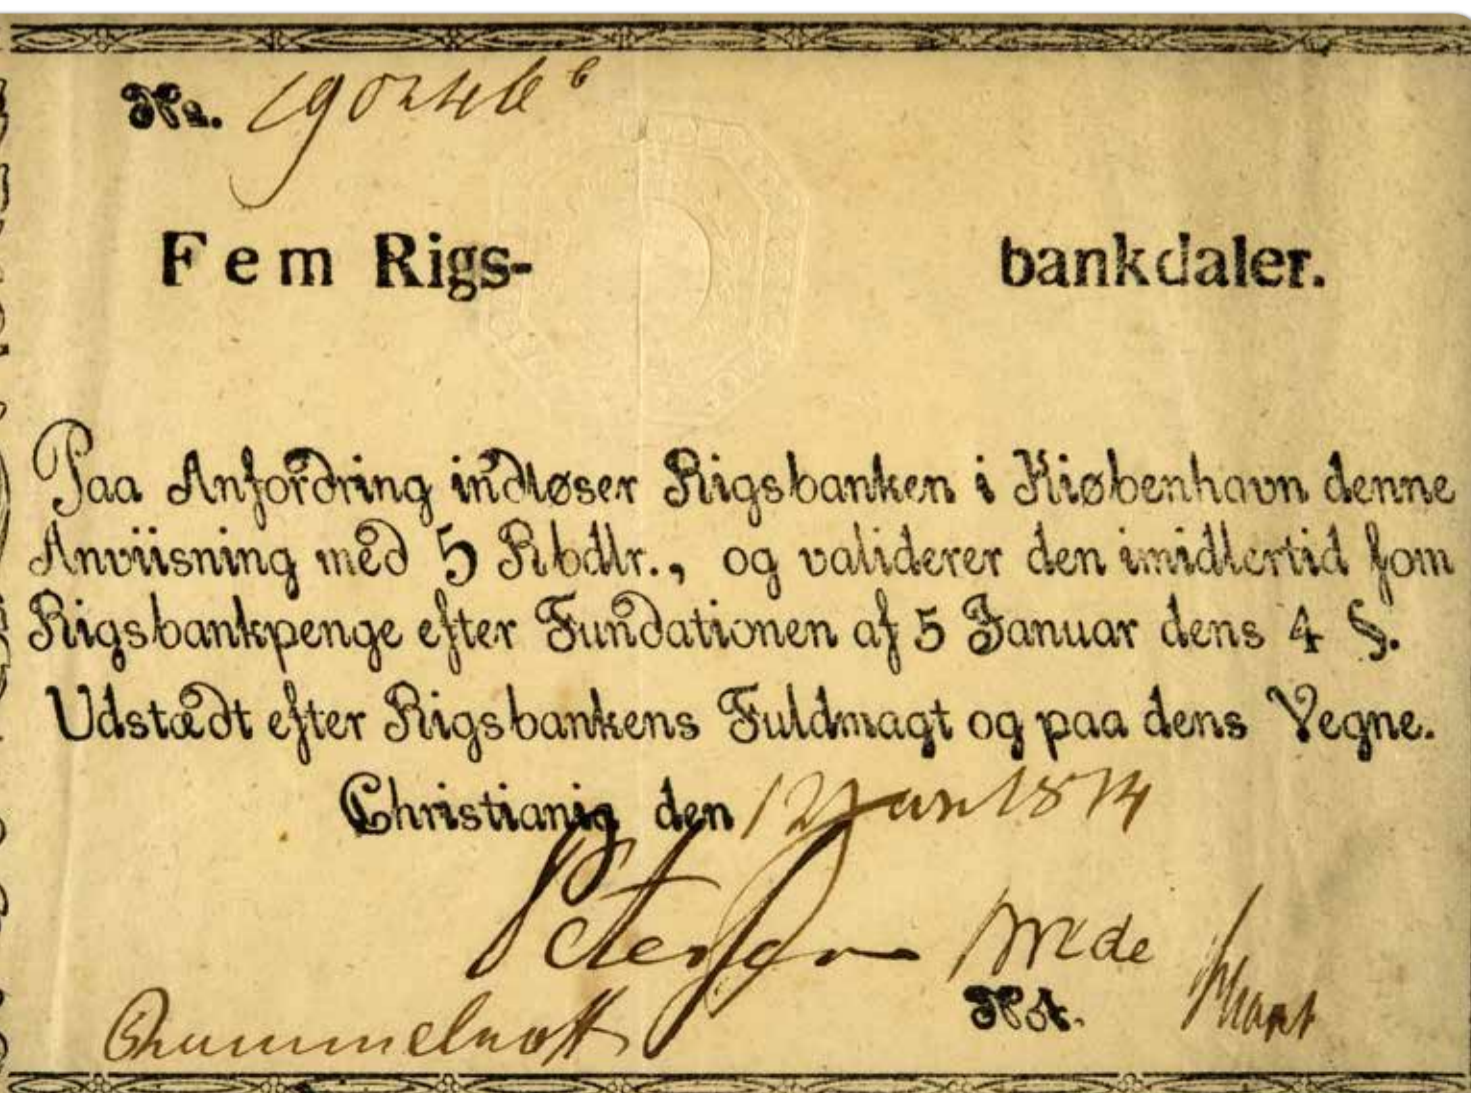 No.
Fem Rigs- bankdaler.
Paa Anfordring indløser Rigsbanken i Kiøbenhavn denne
Anviisning med 5 Rbdlr., og validerer den imidlertid som
Rigsbankpenge efter Fundationen af 5 Januar dens 4 §.
Udstædt efter Rigsbankens Fuldmagt og paa dens Vegne.
Christiania den 12 Jan 1814